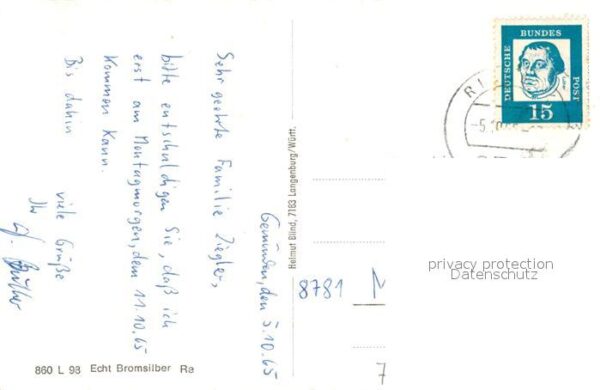 Gemünden, den 5.10.65
Sehr geehrte Familie Ziegler,
bitte entschuldigen Sie, daß ich
erst am Montagmorgen, dem 11.10.65
kommen kann.
Bis dahin viele Grüße
Ihr
Helmut Blind, 7183 Langenburg/Württ.
860 L 98 Echt Bromsilber Ra
DEUTSCHE BUNDES POST
Luther
15
8781
7
privacy protection
Datenschutz